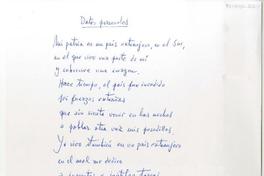 Datos personales
Mi patria es un país extranjero, en el Sur,
en el que vive una parte de mí
y sobrevive una imagen.
Hace tiempo, el país fue invadido
por fuerzas extrañas
que aún siento venir en las noches
a poblar otra vez mis pesadillas.
Yo vivo también en un país extranjero
en el cual me dedico
a